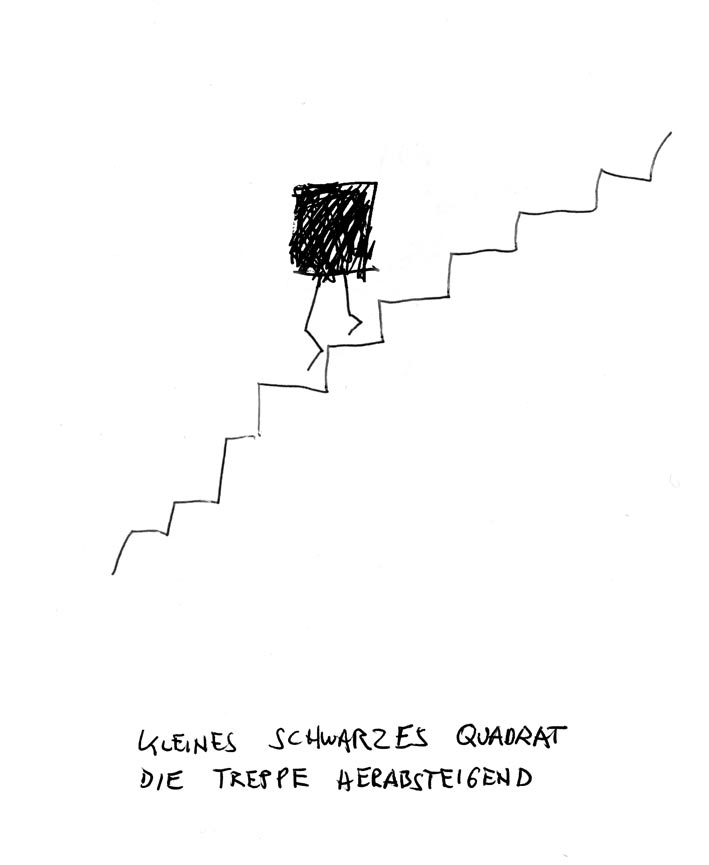 KLEINES SCHWARZES QUADRAT
DIE TREPPE HERABSTEIGEND